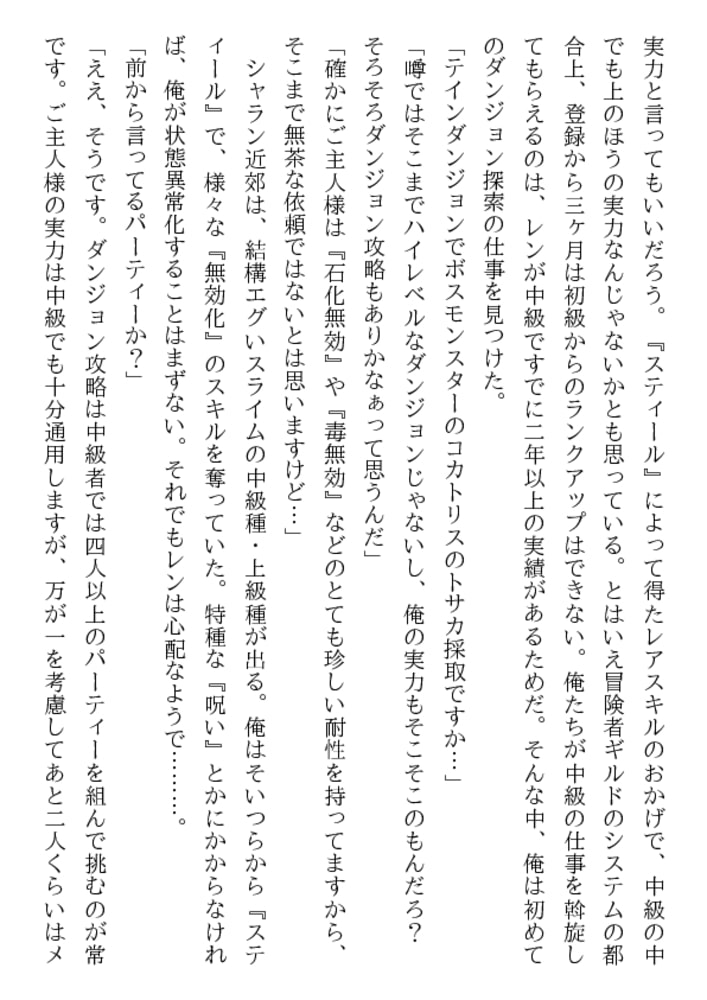 実力と言ってもいいだろう。『スティール』によって得たレアスキルのおかげで、中級の中
でも上のほうの実力なんじゃないかとも思っている。とはいえ冒険者ギルドのシステムの都
合上、登録から三ヶ月は初級からのランクアップはできない。俺たちが中級の仕事を斡旋し
てもらえるのは、レンが中級ですでに二年以上の実績があるためだ。そんな中、俺は初めて
のダンジョン探索の仕事を見つけた。
「テインダンジョンでボスモンスターのコカトリスのトサカ採取ですか…」
「噂ではそこまでハイレベルなダンジョンじゃないし、俺の実力もそこそこのもんだろ？
そろそろダンジョン攻略もありかなぁって思うんだ」
「確かにご主人様は『石化無効』や『毒無効』などのとても珍しい耐性を持ってますから、
そこまで無茶な依頼ではないとは思いますけど…」
　シャラン近郊は、結構エグいスライムの中級種・上級種が出る。俺はそいつらから『ステ
ィール』で、様々な『無効化』のスキルを奪っていた。特種な『呪い』とかにかからなけれ
ば、俺が状態異常化することはまずない。それでもレンは心配なようで………。
「前から言ってるパーティーか？」
「ええ、そうです。ダンジョン攻略は中級者では四人以上のパーティーを組んで挑むのが常
です。ご主人様の実力は中級でも十分通用しますが、万が一を考慮してあと二人くらいはメ